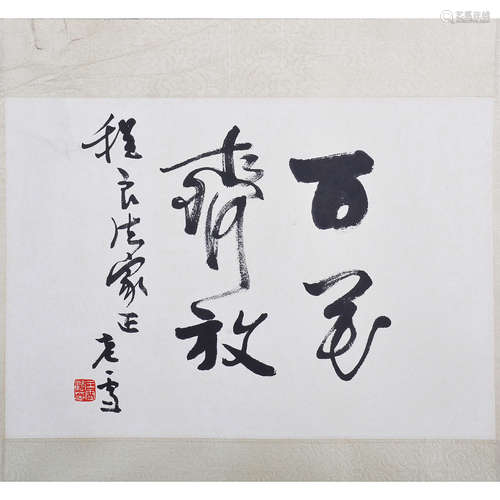 百花
齊放
程良法家正
老雪